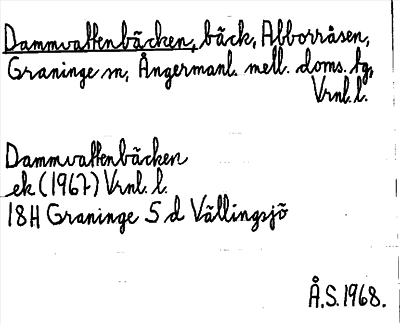 Dammvattenbäcken, bäck, Abborråsen,
Graninge sn, Ångermanl. mell. doms. tg,
Vrnl. l.
Dammvattenbäcken
ek (1967) Vrnl. l.
18H Graninge 5 d Vällingsjö
Å.S. 1968.